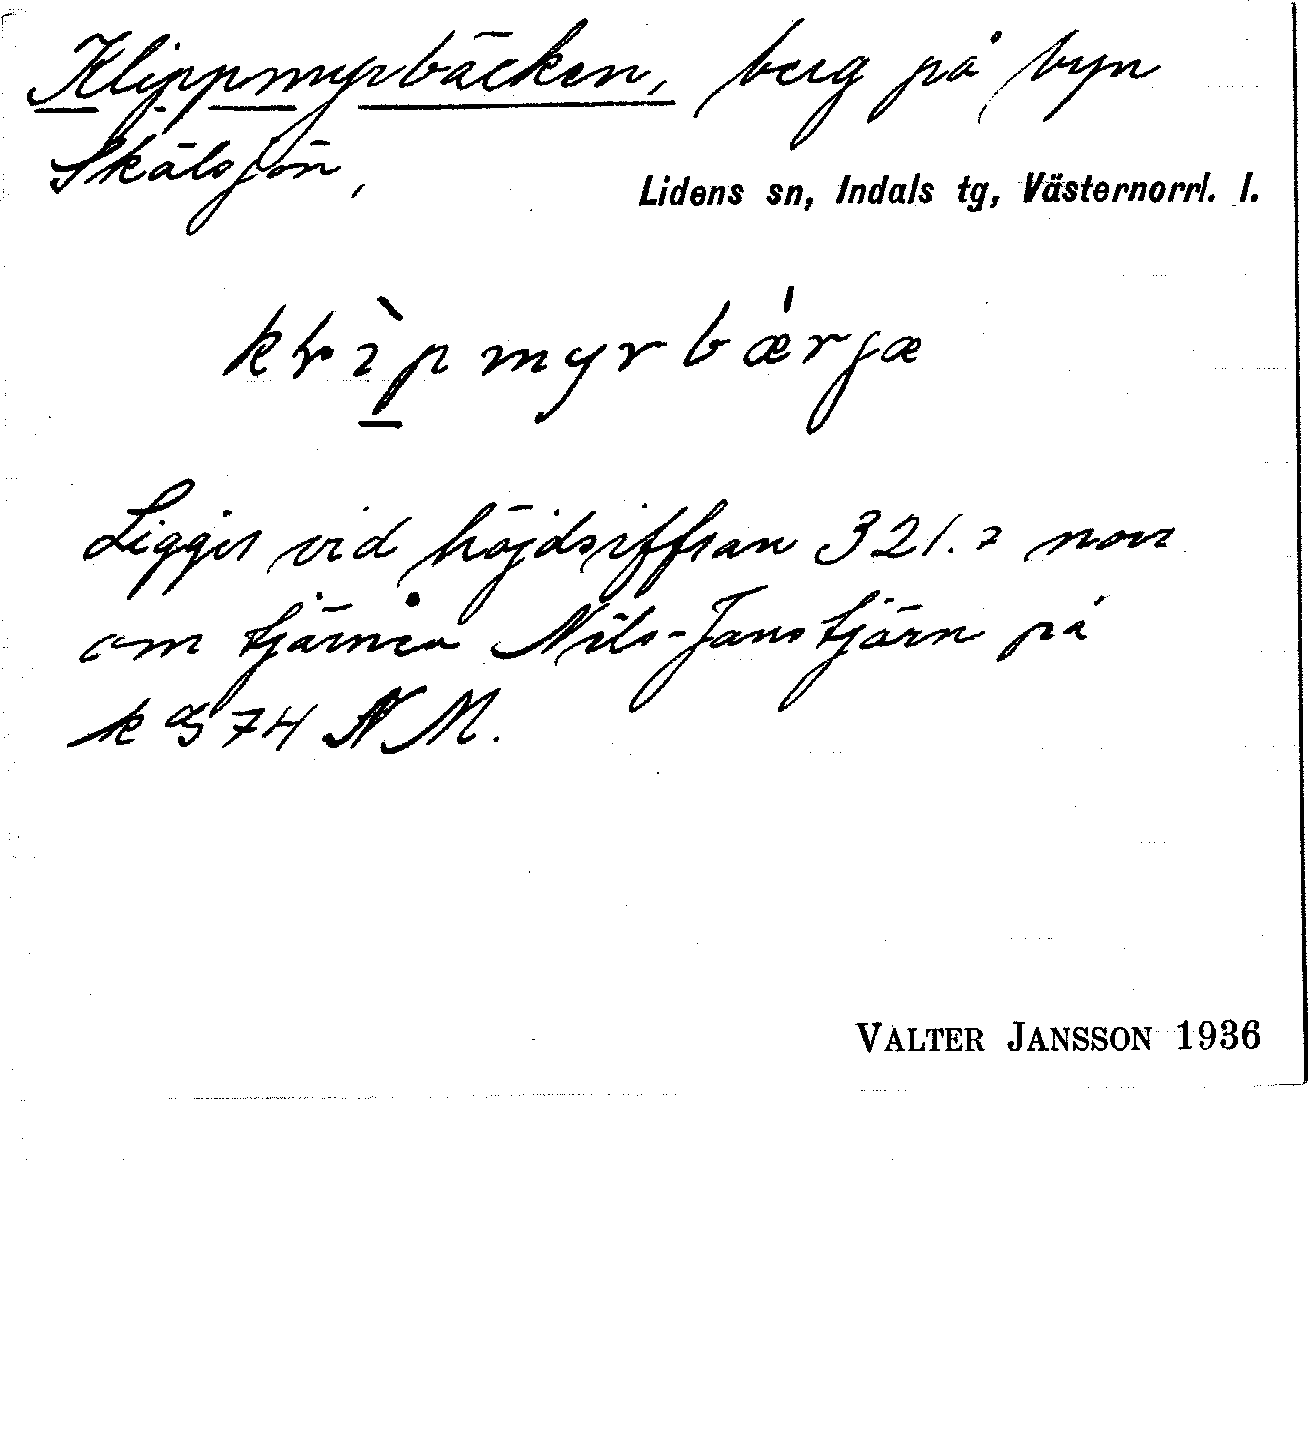 Klippmyrbäcken, berg på byn
Skälsjön,
Lidens sn, Indals tg, Västernorrl. l.
myrbǽrjæ
Ligger vid höjdsiffran 321.2 norr
om tjärnen Nils-Janstjärn på
74 NM.
VALTER JANSSON 1936